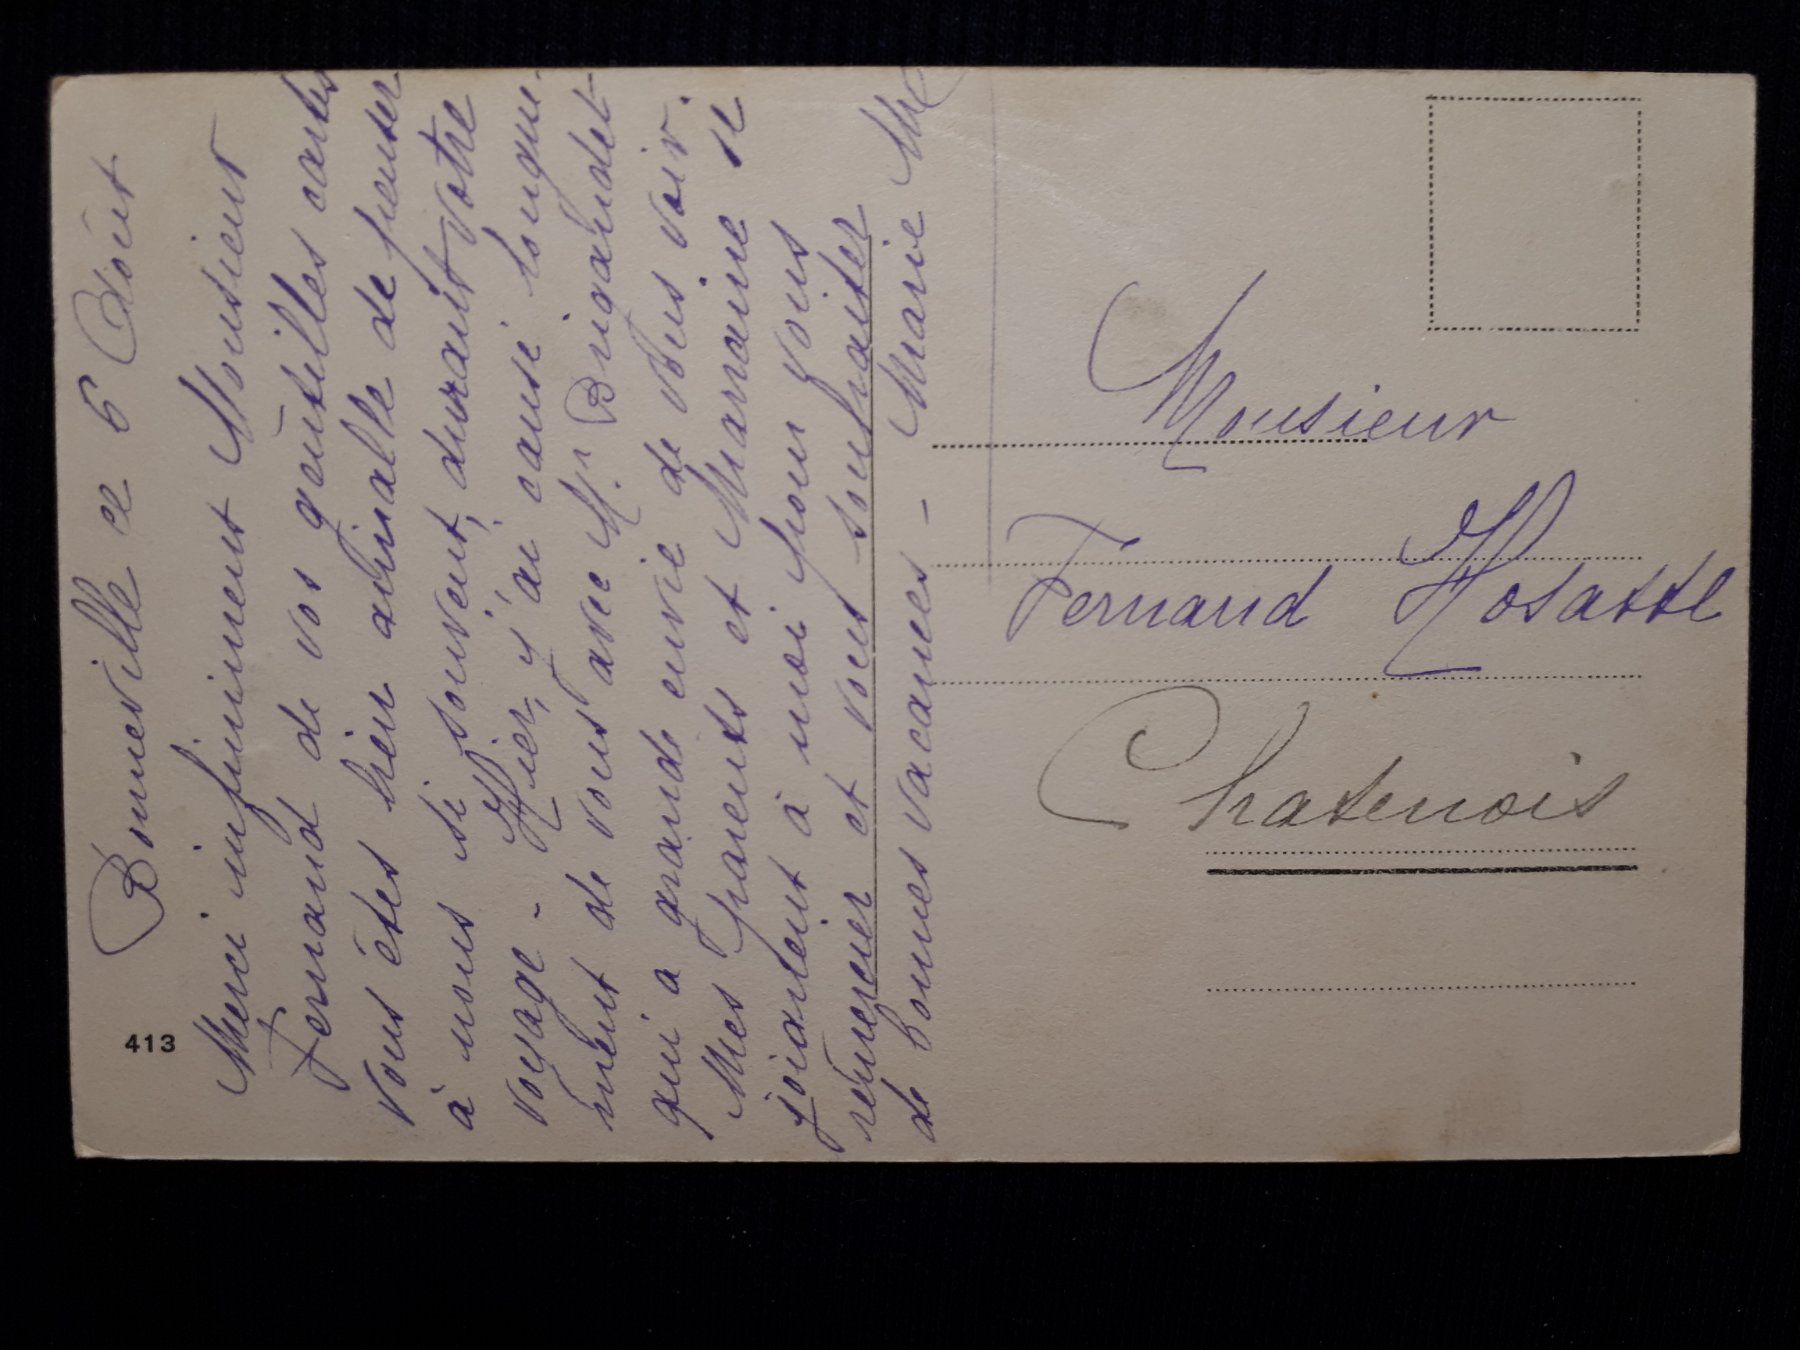 Bonneville ce 6 Août
Merci infiniment Monsieur
Fernand de vos gentilles cartes
vous êtes bien aimable de penser
à nous si souvent, durant votre
voyage - Hier, j'ai causé longue-
ment de vous avec Mr
qui a grande envie de vous voir.
Mes parents et Marraine se
joignent à moi pour vous
remercier et vous souhaiter
de bonnes vacances - Marie
413
Monsieur
Fernand Hosatte
Chatenois